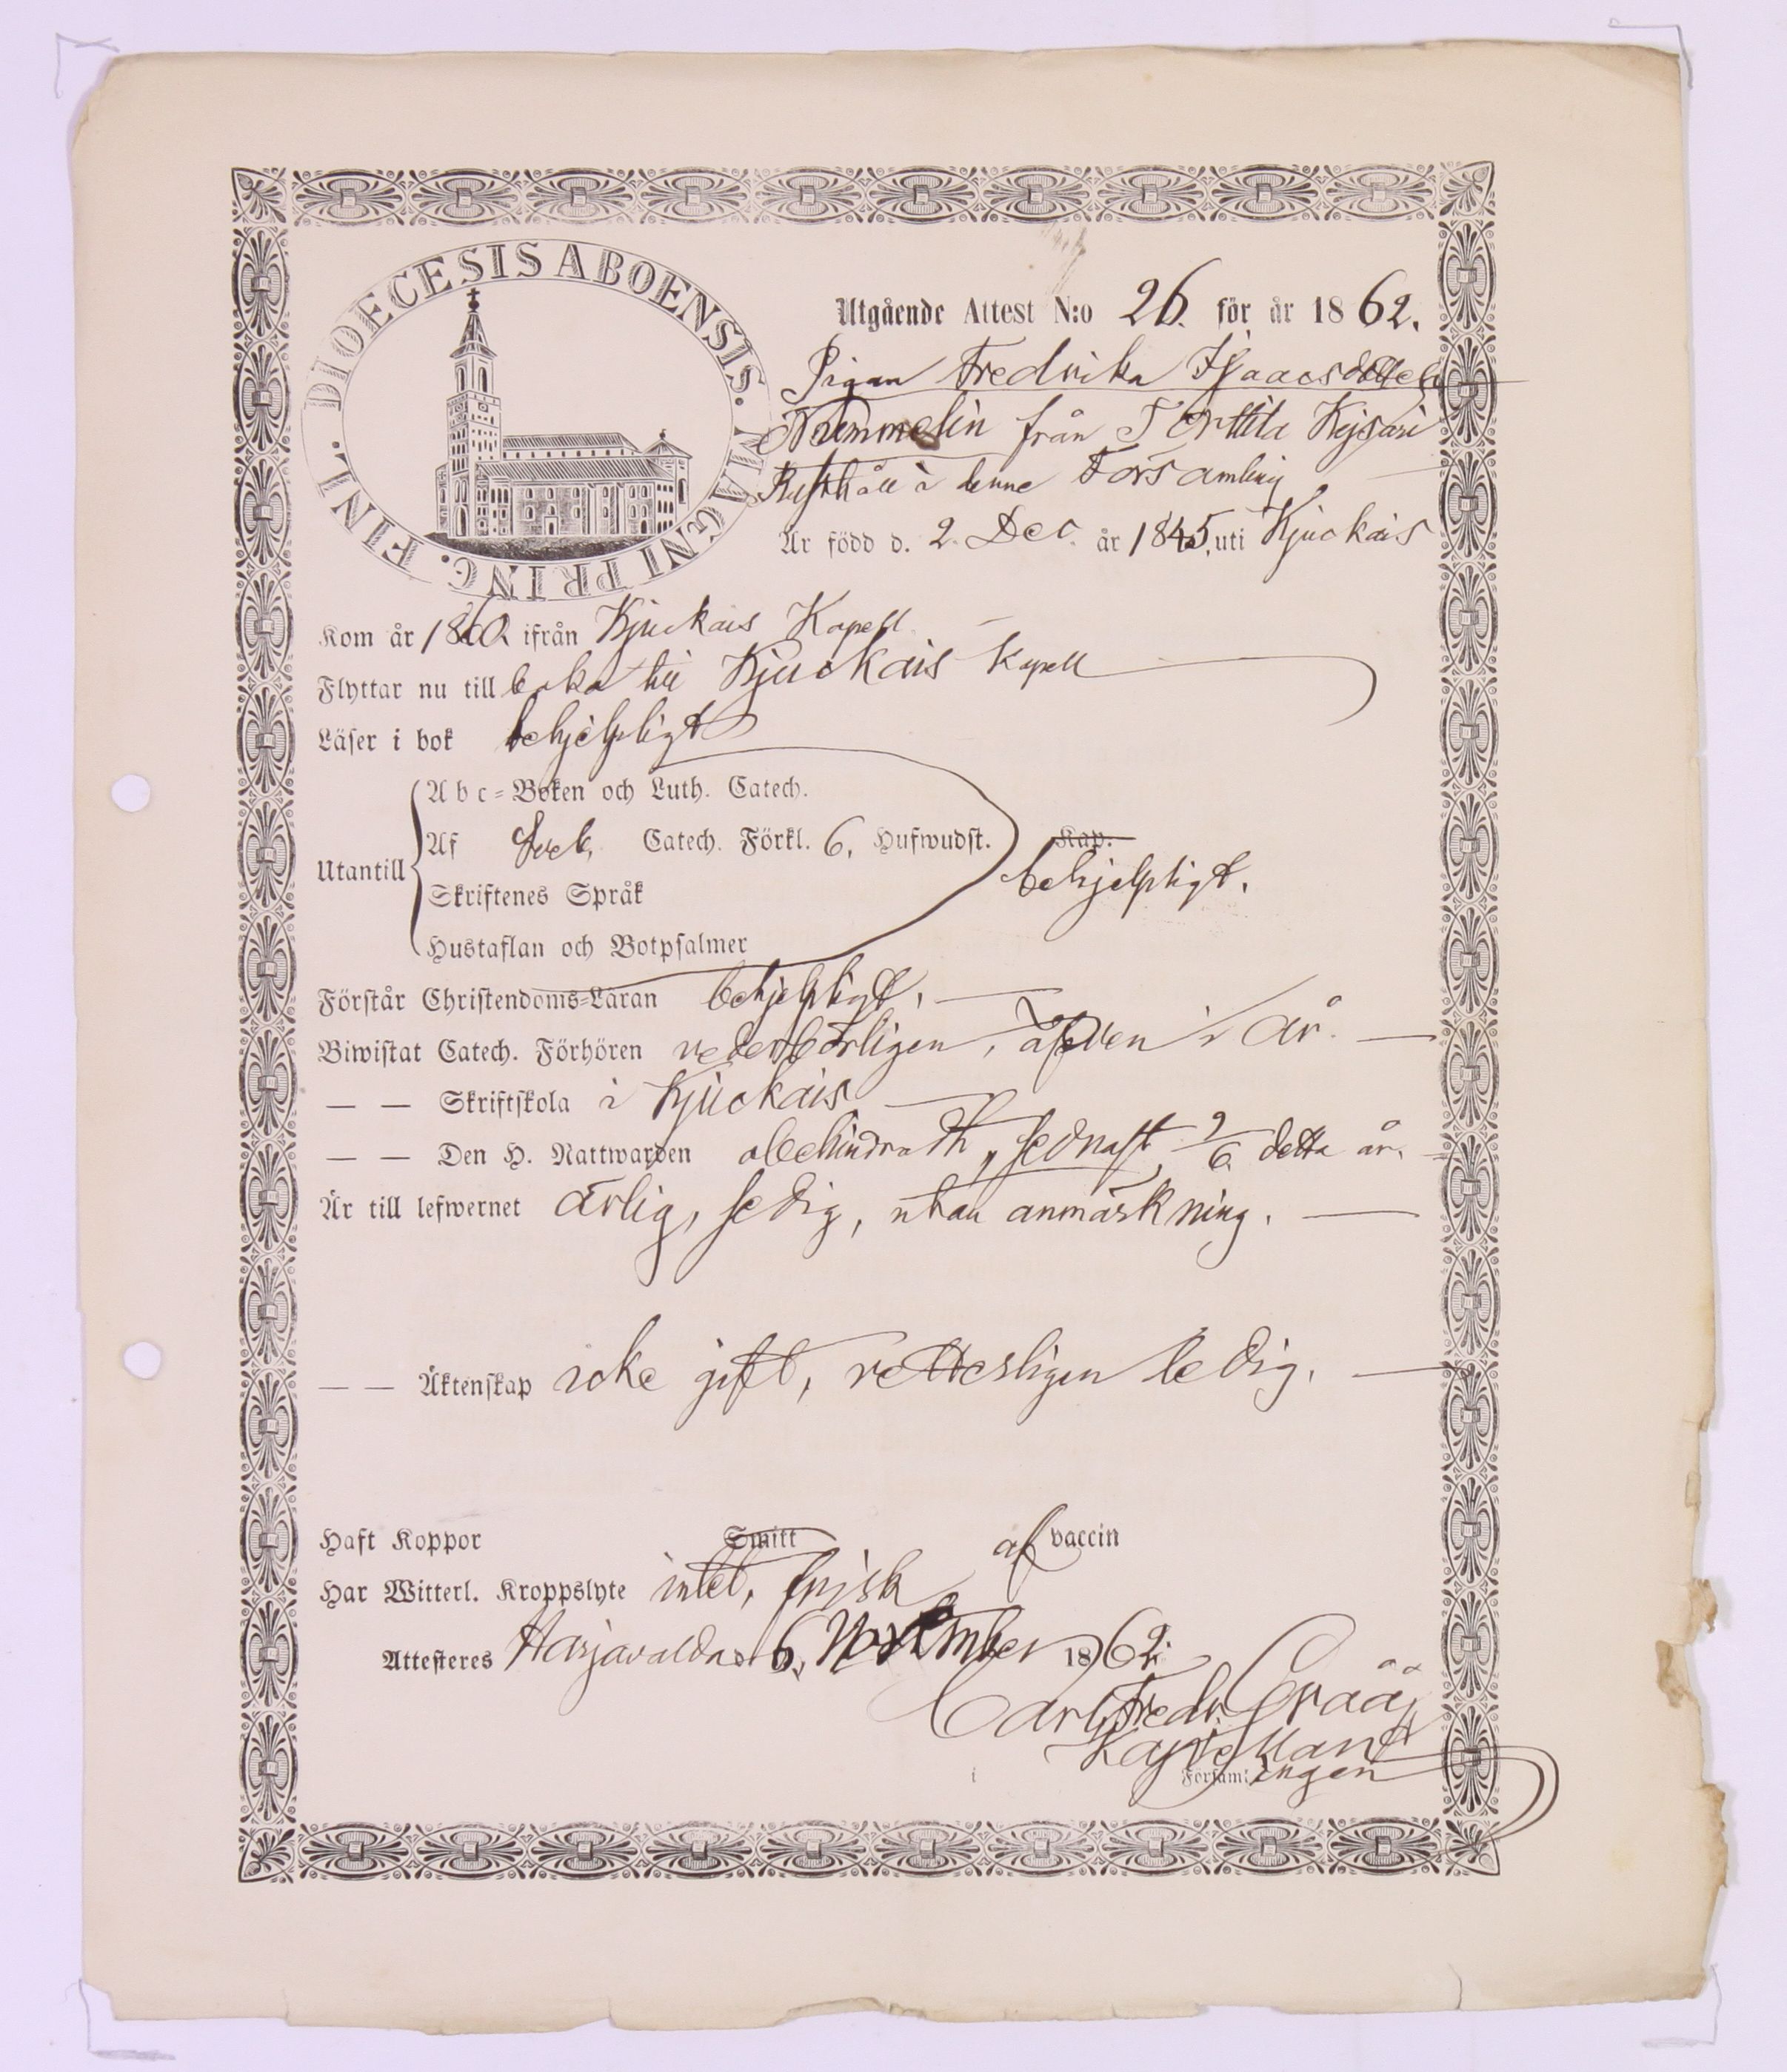 DIOECESIS ABOENSIS. MAGNI PRINC. FINL.
Utgående Attest N:o 26. för år 1862.
Pigan Fredrika Isaacsdotter
Nummelin från Torttila Kejsari
Rusthåll i denne Församling
Är född d. 2. Dec. år 1845, uti Kjuckais
Kom år 1860 ifrån Kjuckais Kapell
Flyttar nu till baka till Kjuckais Kapell
Läser i bok behjelpligt
Abc-Boken och Luth. Catech.
Af Sveb. Catech. Förkl. 6, Hufwudst. Kap.
Utantill behjelpligt.
Skriftenes Språk
Hustaflan och Botpsalmer
Förstår Christendoms-Läran behjelpligt.
Biwistat Catech. Förhören vederbörligen, äfven i år.
— — Skriftskola i Kjuckais
— — Den H. Nattwarden obehindradt, sednast 9/6 detta år.
Är till lefwernet ärlig, sedig, utan anmärkning.
— — Äktenskap icke gift, ledig.
Haft Koppor Smitt af vaccin
Har Witterl. Kroppslyte intet, frisk
Attesteres Harjavalda d. 6. November 1862.
Carl Fredr. Grää
Kapellan
i Församlingen